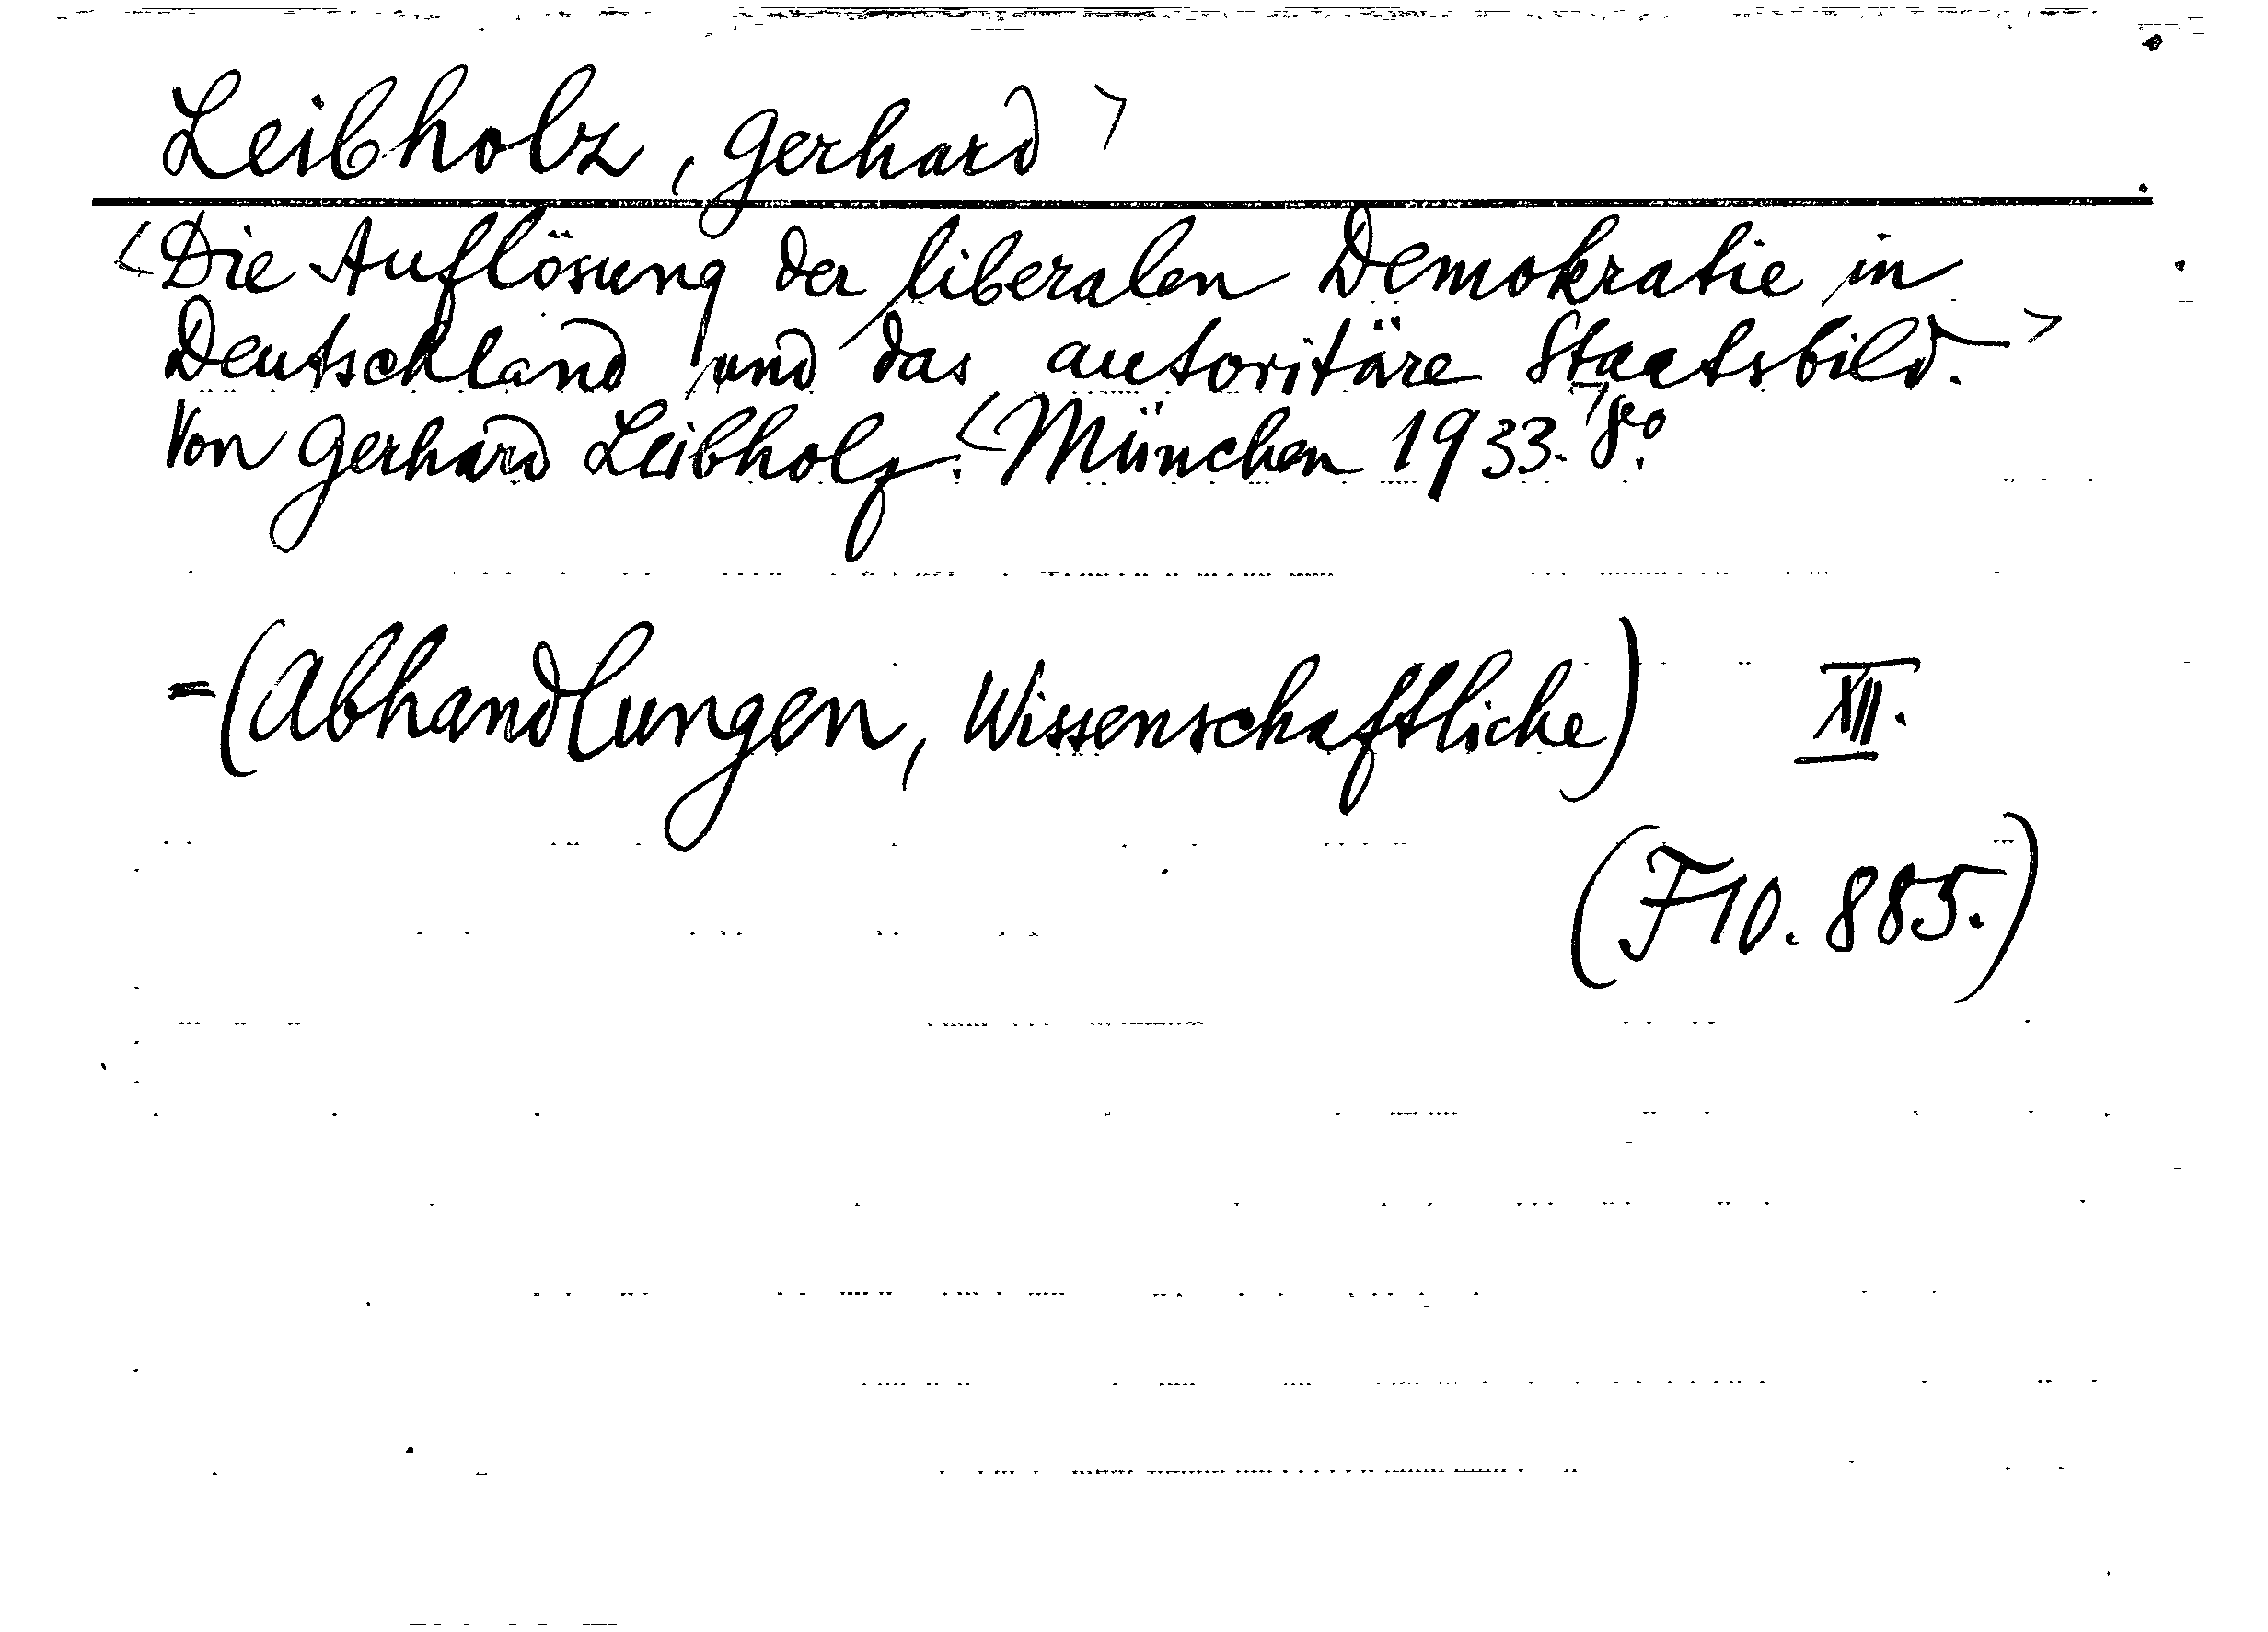 Leibholz, Gerhard >
<Die Auflösung der liberalen Demokratie in
Deutschland und das autoritäre Staatsbild.>
Von Gerhard Leibholz. <München 1933.> 8°.
=(Abhandlungen, Wissenschaftliche) XII.
(F10.885.)